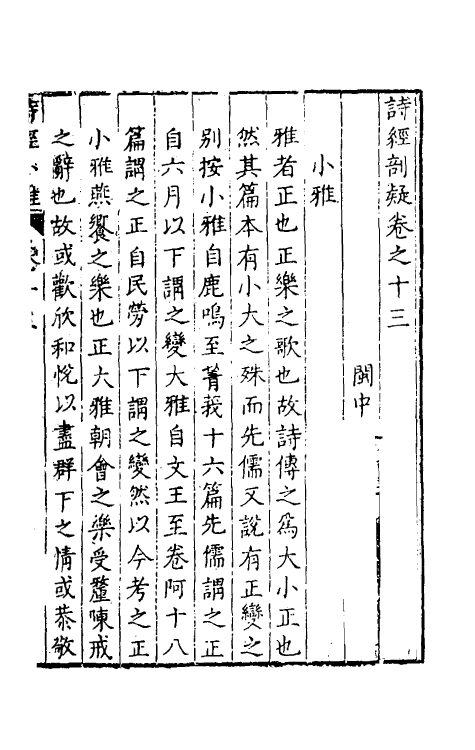 詩經剖疑卷之十三
閩中
小雅
雅者正也正樂之歌也故詩傳之爲大小正也
然其篇本有小大之殊而先儒又說有正變之
別按小雅自鹿嗚至菁莪十六篇先儒謂之正
自六月以下謂之變大雅自文王至卷阿十八
篇謂之正自民勞以下謂之變然以今考之正
小雅燕饗之樂也正大雅朝會之樂受釐陳戒
之辭也故或歡欣和悅以盡群下之情或恭敬